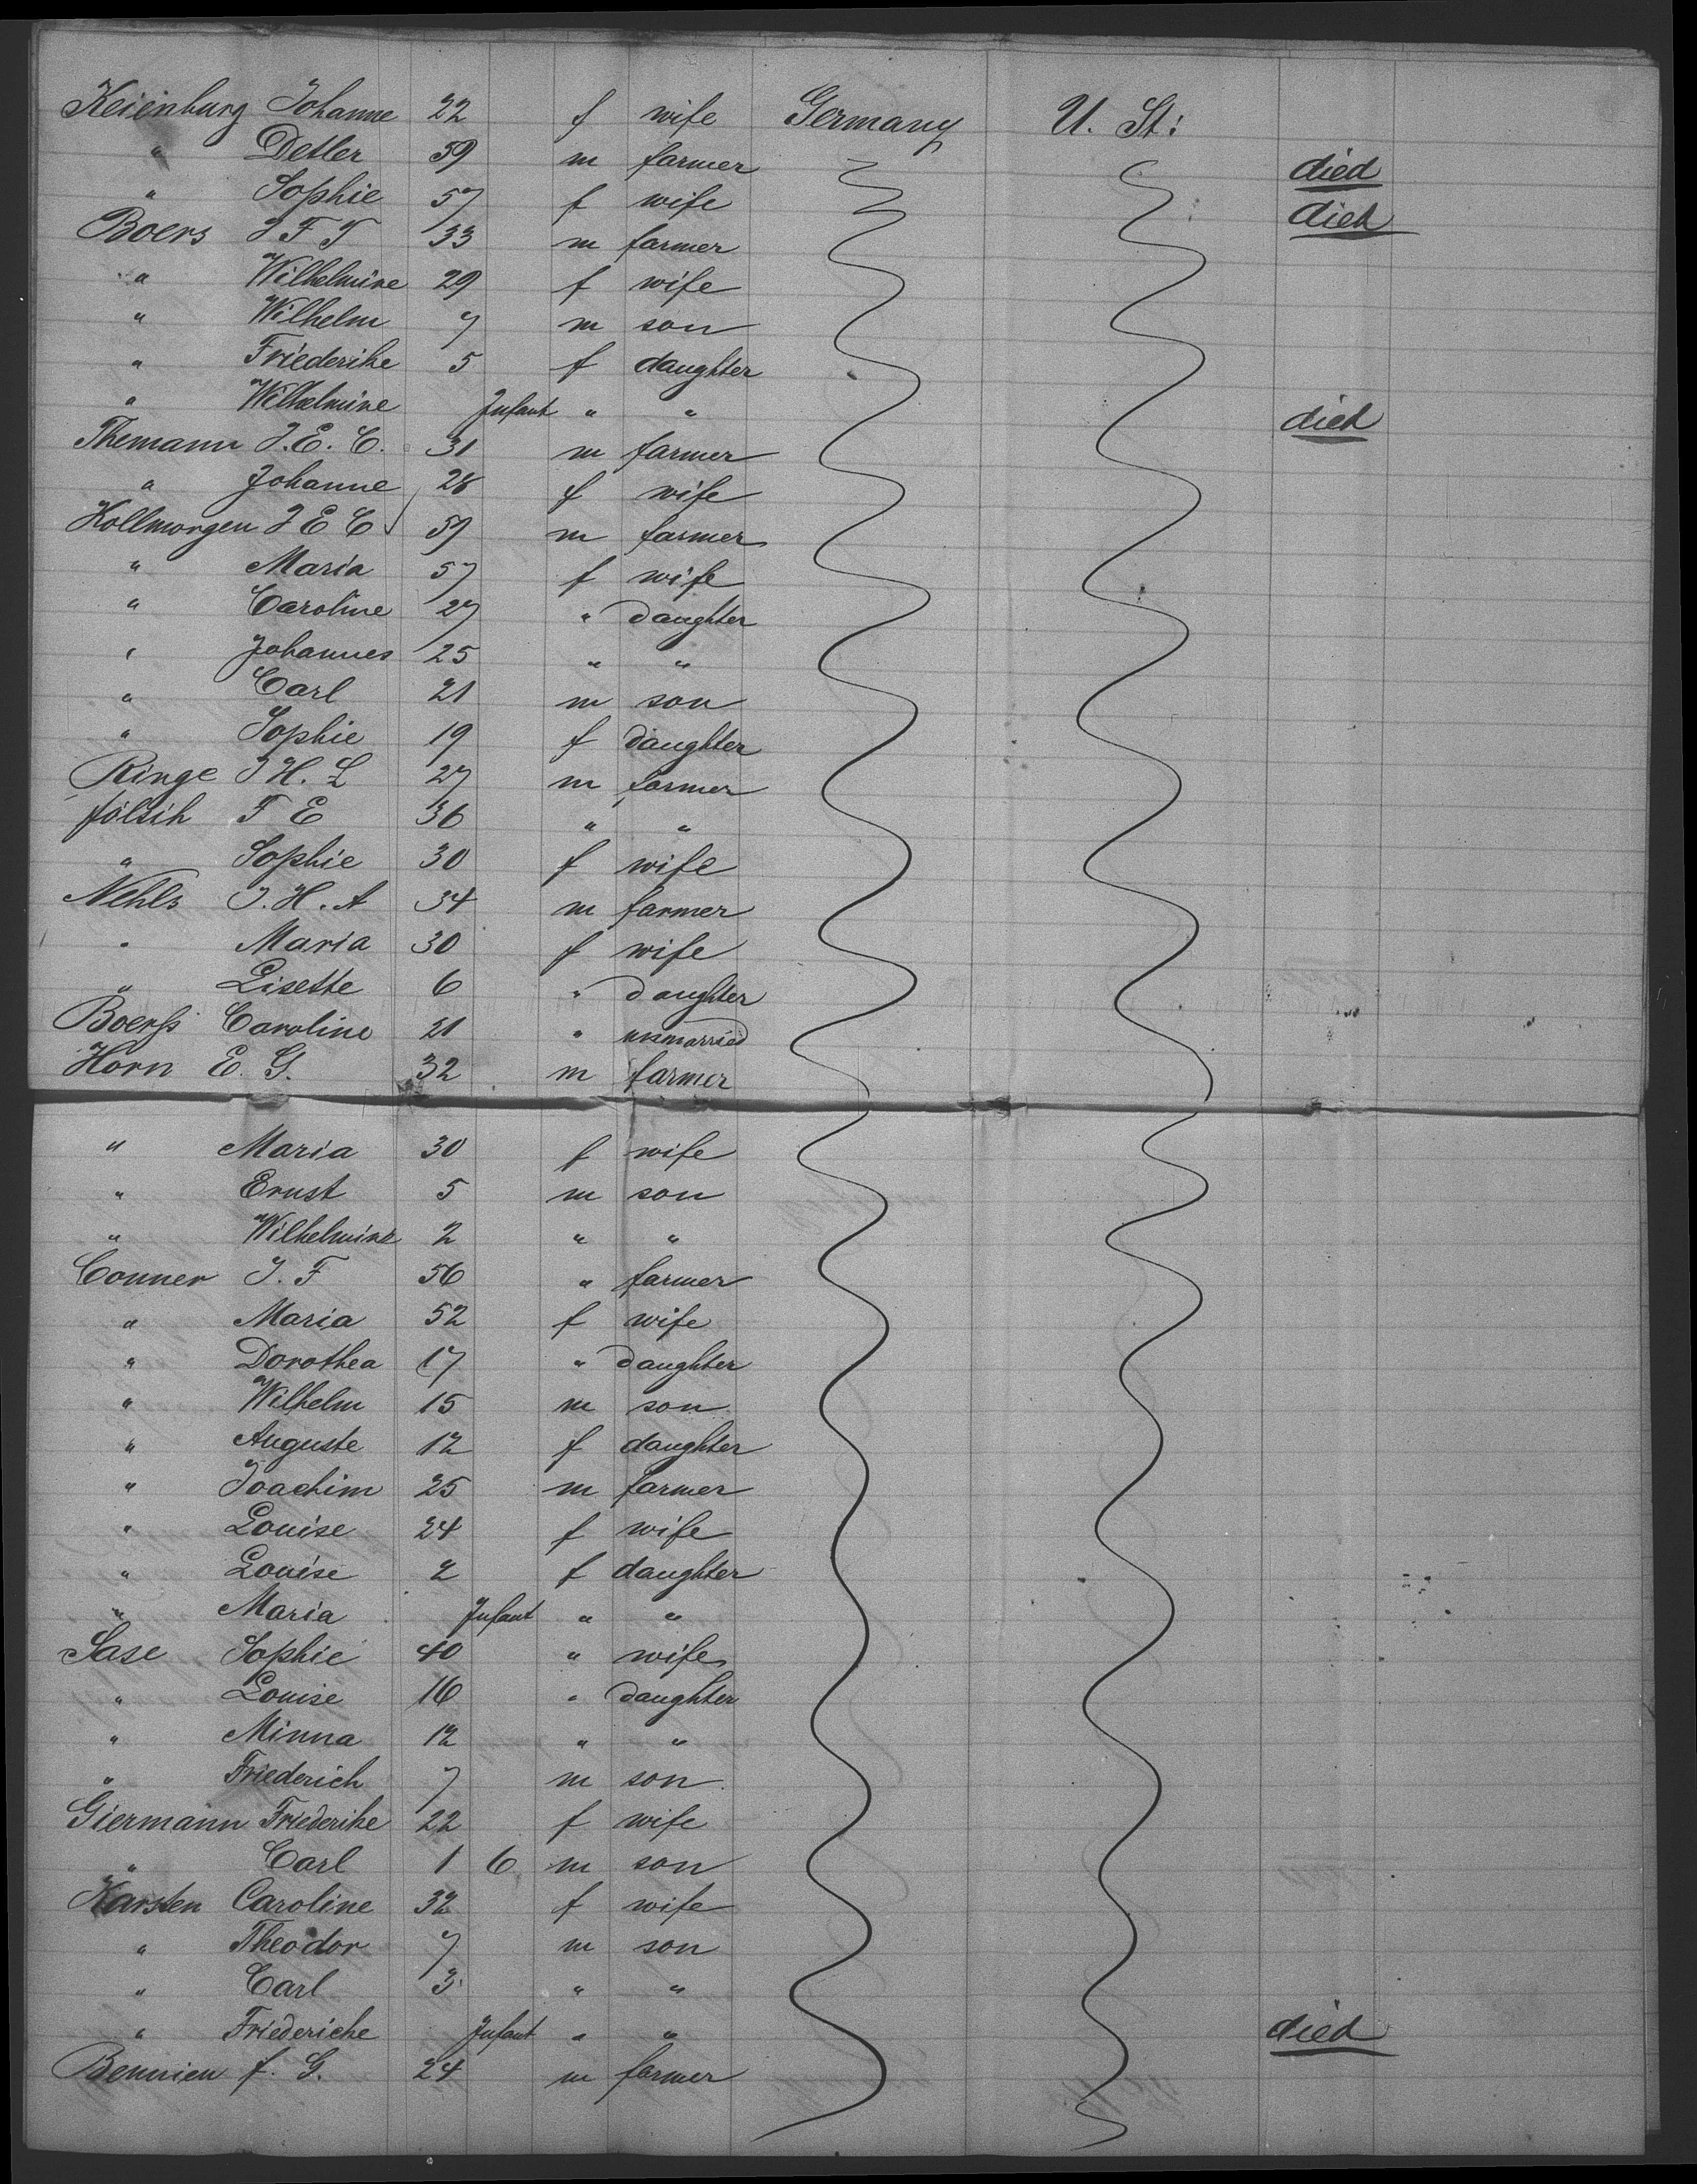 Keienburg Johanne 22 f wife Germany U. St:
" Detler 59 m farmer died
" Sophie 57 f wife died
Boers J F T 33 m farmer
" Wilhelmine 29 f wife
" Wilhelm 7 m son
" Friederike 5 f daughter
" Wilhelmine Infant " " died
Themann J. E. C. 31 m farmer
" Johanne 28 f wife
Hollmorgen J E C 59 m farmer
" Maria 57 f wife
" Caroline 27 " daughter
" Johannes 25 " "
" Carl 21 m son
" Sophie 19 f daughter
Ringe J H. L 27 m farmer
fölsih F E 36 " "
" Sophie 30 f wife
Nehls J. H. A 34 m farmer
" Maria 30 f wife
" Lisette 6 " daughter
Boerss Caroline 21 " unmarried
Horn E. G. 32 m farmer
" Maria 30 f wife
" Ernst 5 m son
" Wilhelmine 2 " "
Conner J. F 56 " farmer
" Maria 52 f wife
" Dorothea 17 " daughter
" Wilhelm 15 m son
" Auguste 12 f daughter
" Joachim 25 m farmer
" Louise 24 f wife
" Louise 2 f daughter
" Maria Infant " "
Sase Sophie 40 " wife
" Louise 16 " daughter
" Minna 12 " "
" Friederich 7 m son
Giermann Friederike 22 f wife
" Carl 1 6 m son
Karsten Caroline 32 f wife
" Theodor 7 m son
" Carl 3 " "
" Friederiche Infant " " died
Bennien f. G. 24 m farmer